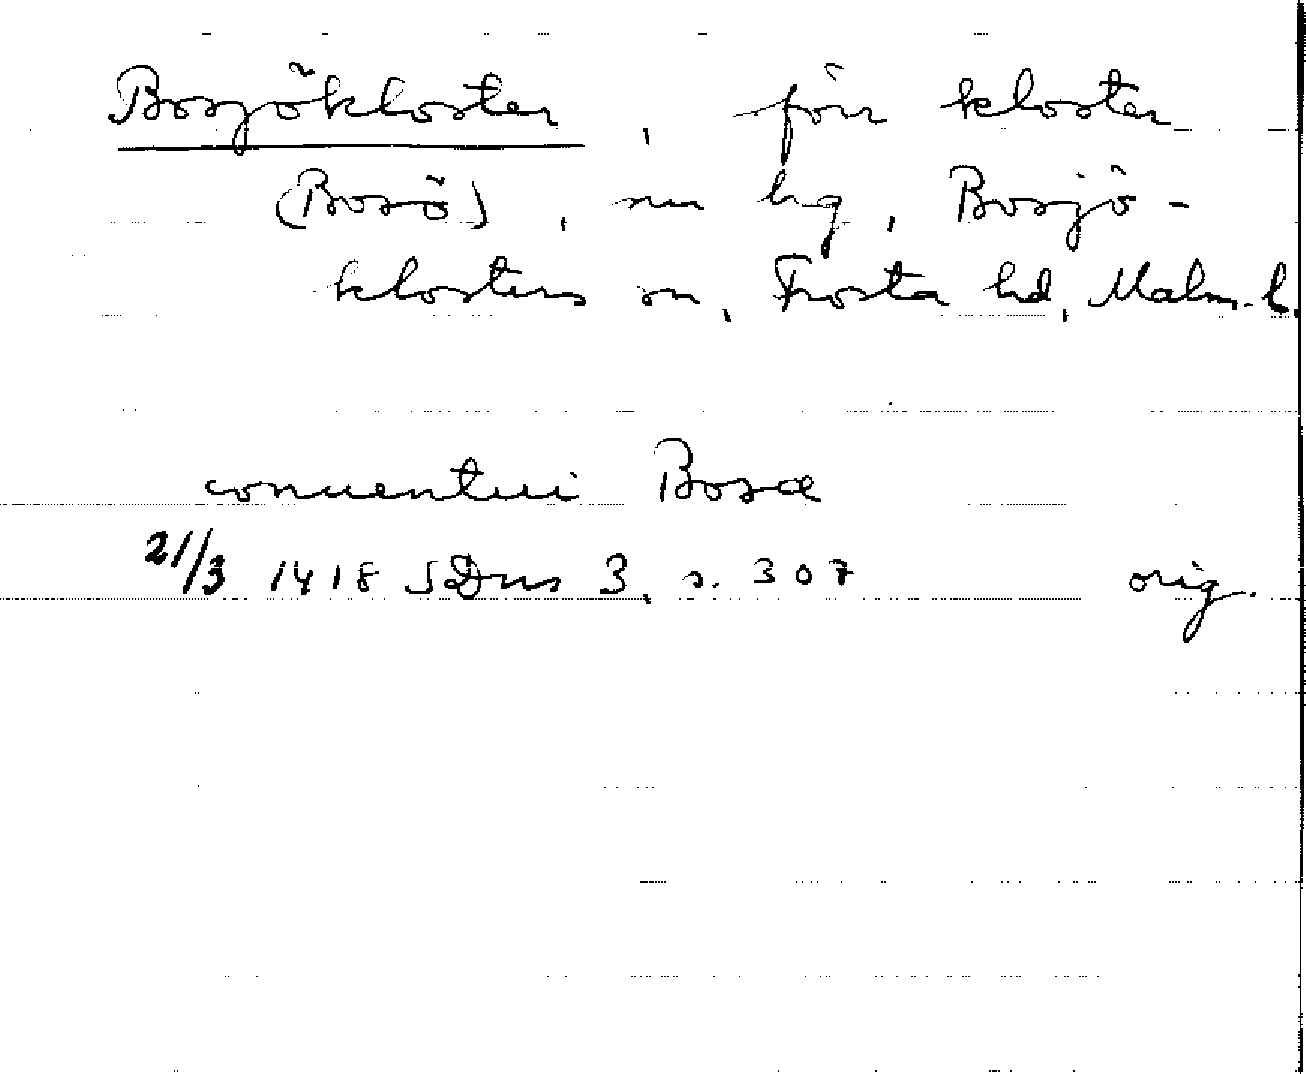 Bosjökloster, förr kloster
(Bosö), nu hg, Bosjö-
klosters sn, Frosta hd, Malm. l.
conuentui Bosæ
21/3 1418 SDns 3, s. 307 orig.